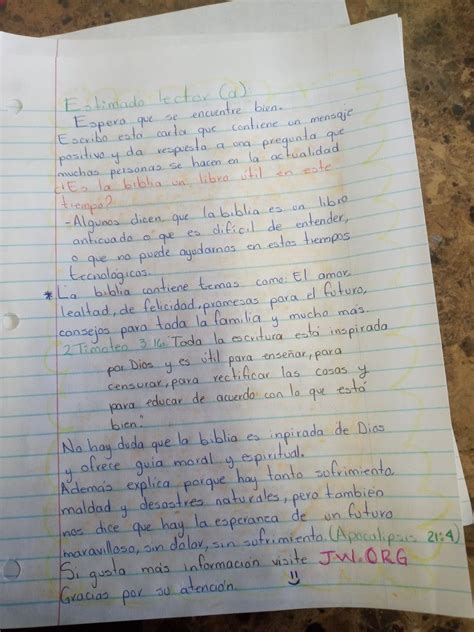 Estimado lector (a).
Espero que se encuentre bien.
Escribo esta carta que contiene un mensaje
positivo y da respuesta a una pregunta que
muchas personas se hacen en la actualidad
¿Es la biblia un libro útil en este
tiempo?
-Algunos dicen que la biblia es un libro
anticuado o que es difícil de entender,
o que no puede ayudarnos en estos tiempos
tecnológicos.
*La biblia contiene temas como: El amor,
lealtad, de felicidad, promesas para el futuro,
consejos para toda la familia y mucho más.
2 Timoteo 3:16. Toda la escritura está inspirada
por Dios y es útil para enseñar, para
censurar, para rectificar las cosas y
para educar de acuerdo con lo que está
bien."
No hay duda que la biblia es inpirada de Dios
y ofrece guía moral y espiritual.
Además explica porque hay tanto sufrimiento
maldad y desastres naturales, pero también
nos dice que hay la esperanza de un futuro
maravilloso, sin dolor, sin sufrimiento. (Apocalipsis 21:4)
Si gusta más información visite JW.ORG
Gracias por su atención.